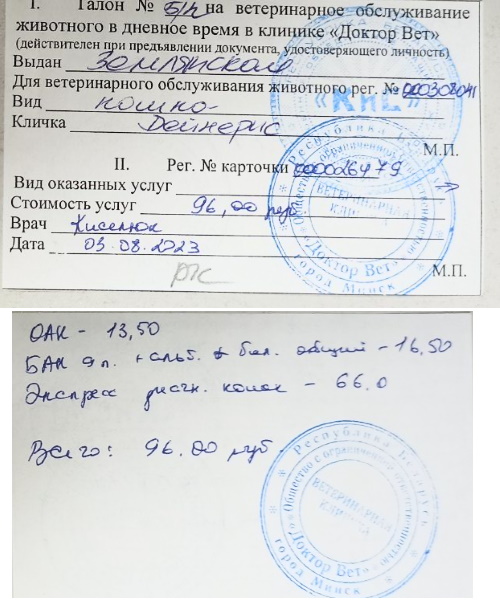 I. Талон № Б/н на ветеринарное обслуживание
животного в дневное время в клинике «Доктор Вет»
(действителен при предъявлении документа, удостоверяющего личность)
Выдан
Для ветеринарного обслуживания животного рег. №
«КиС»
Вид кошка
Кличка Дейнерис
М.П.
II. Рег. № карточки 000026479
Вид оказанных услуг
Стоимость услуг 96,00 руб
Врач Киселюк
Дата 03.08.2023
М.П.
Республика Беларусь
Общество с ограниченной ответственностью
ВЕТЕРИНАРНАЯ
КЛИНИКА
«Доктор Вет»
город Минск
ОАК - 13,50
БАК 9 п. + альб. + бел. общий - 16,50
Экспресс диагн. кошек - 66.0
Всего: 96.00 руб
Республика Беларусь
Общество с ограниченной ответственностью
ВЕТЕРИНАРНАЯ
КЛИНИКА
«Доктор Вет»
город Минск